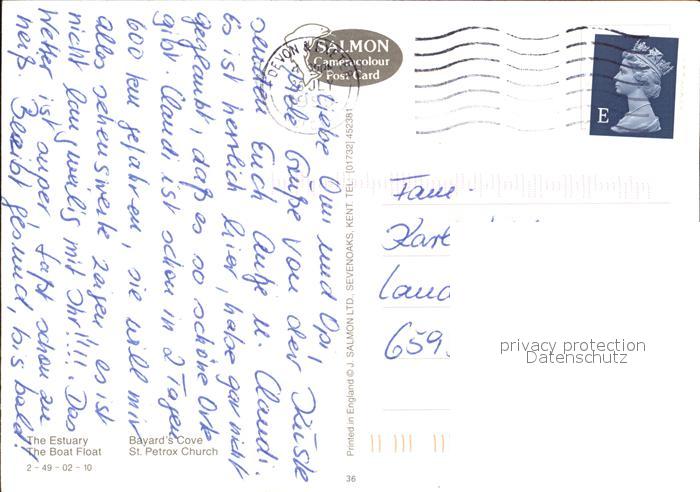 Liebe Omi und Opi,
viele Grüße von der Küste
senden Euch Antje u. Claudi.
Es ist herrlich hier, habe gar nicht
geglaubt, daß es so schöne Orte
gibt. Claudi ist schon in 2 Tagen
600 km gefahren, sie will mir
alles sehenswerte zeigen, es ist
nicht langweilig mit Ihr!!!! Das
Wetter ist super, fast schon zu
heiß. Bleibt gesund, bis bald!
SALMON
Cameracolour
Post Card
DEVON &
E
Printed in England © J. SALMON LTD., SEVENOAKS, KENT. TEL: (01732) 452381
Fam
Karl
Land
659
privacy protection
Datenschutz
The Estuary Bayard's Cove
The Boat Float St. Petrox Church
2 - 49 - 02 - 10
36